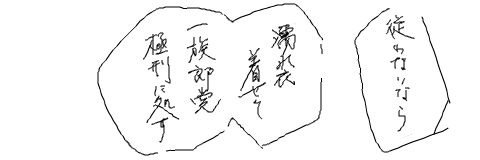 従わないなら
濡れ衣
着せて
一族郎党
極刑に処す